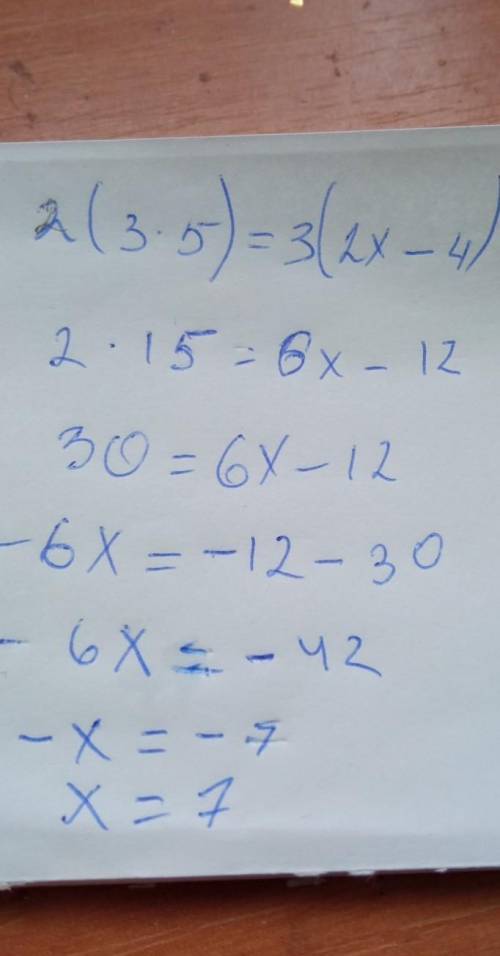 2(3·5)=3(2x-4)
2·15=6x-12
30=6x-12
-6x=-12-30
-6x=-42
-x=-7
x=7